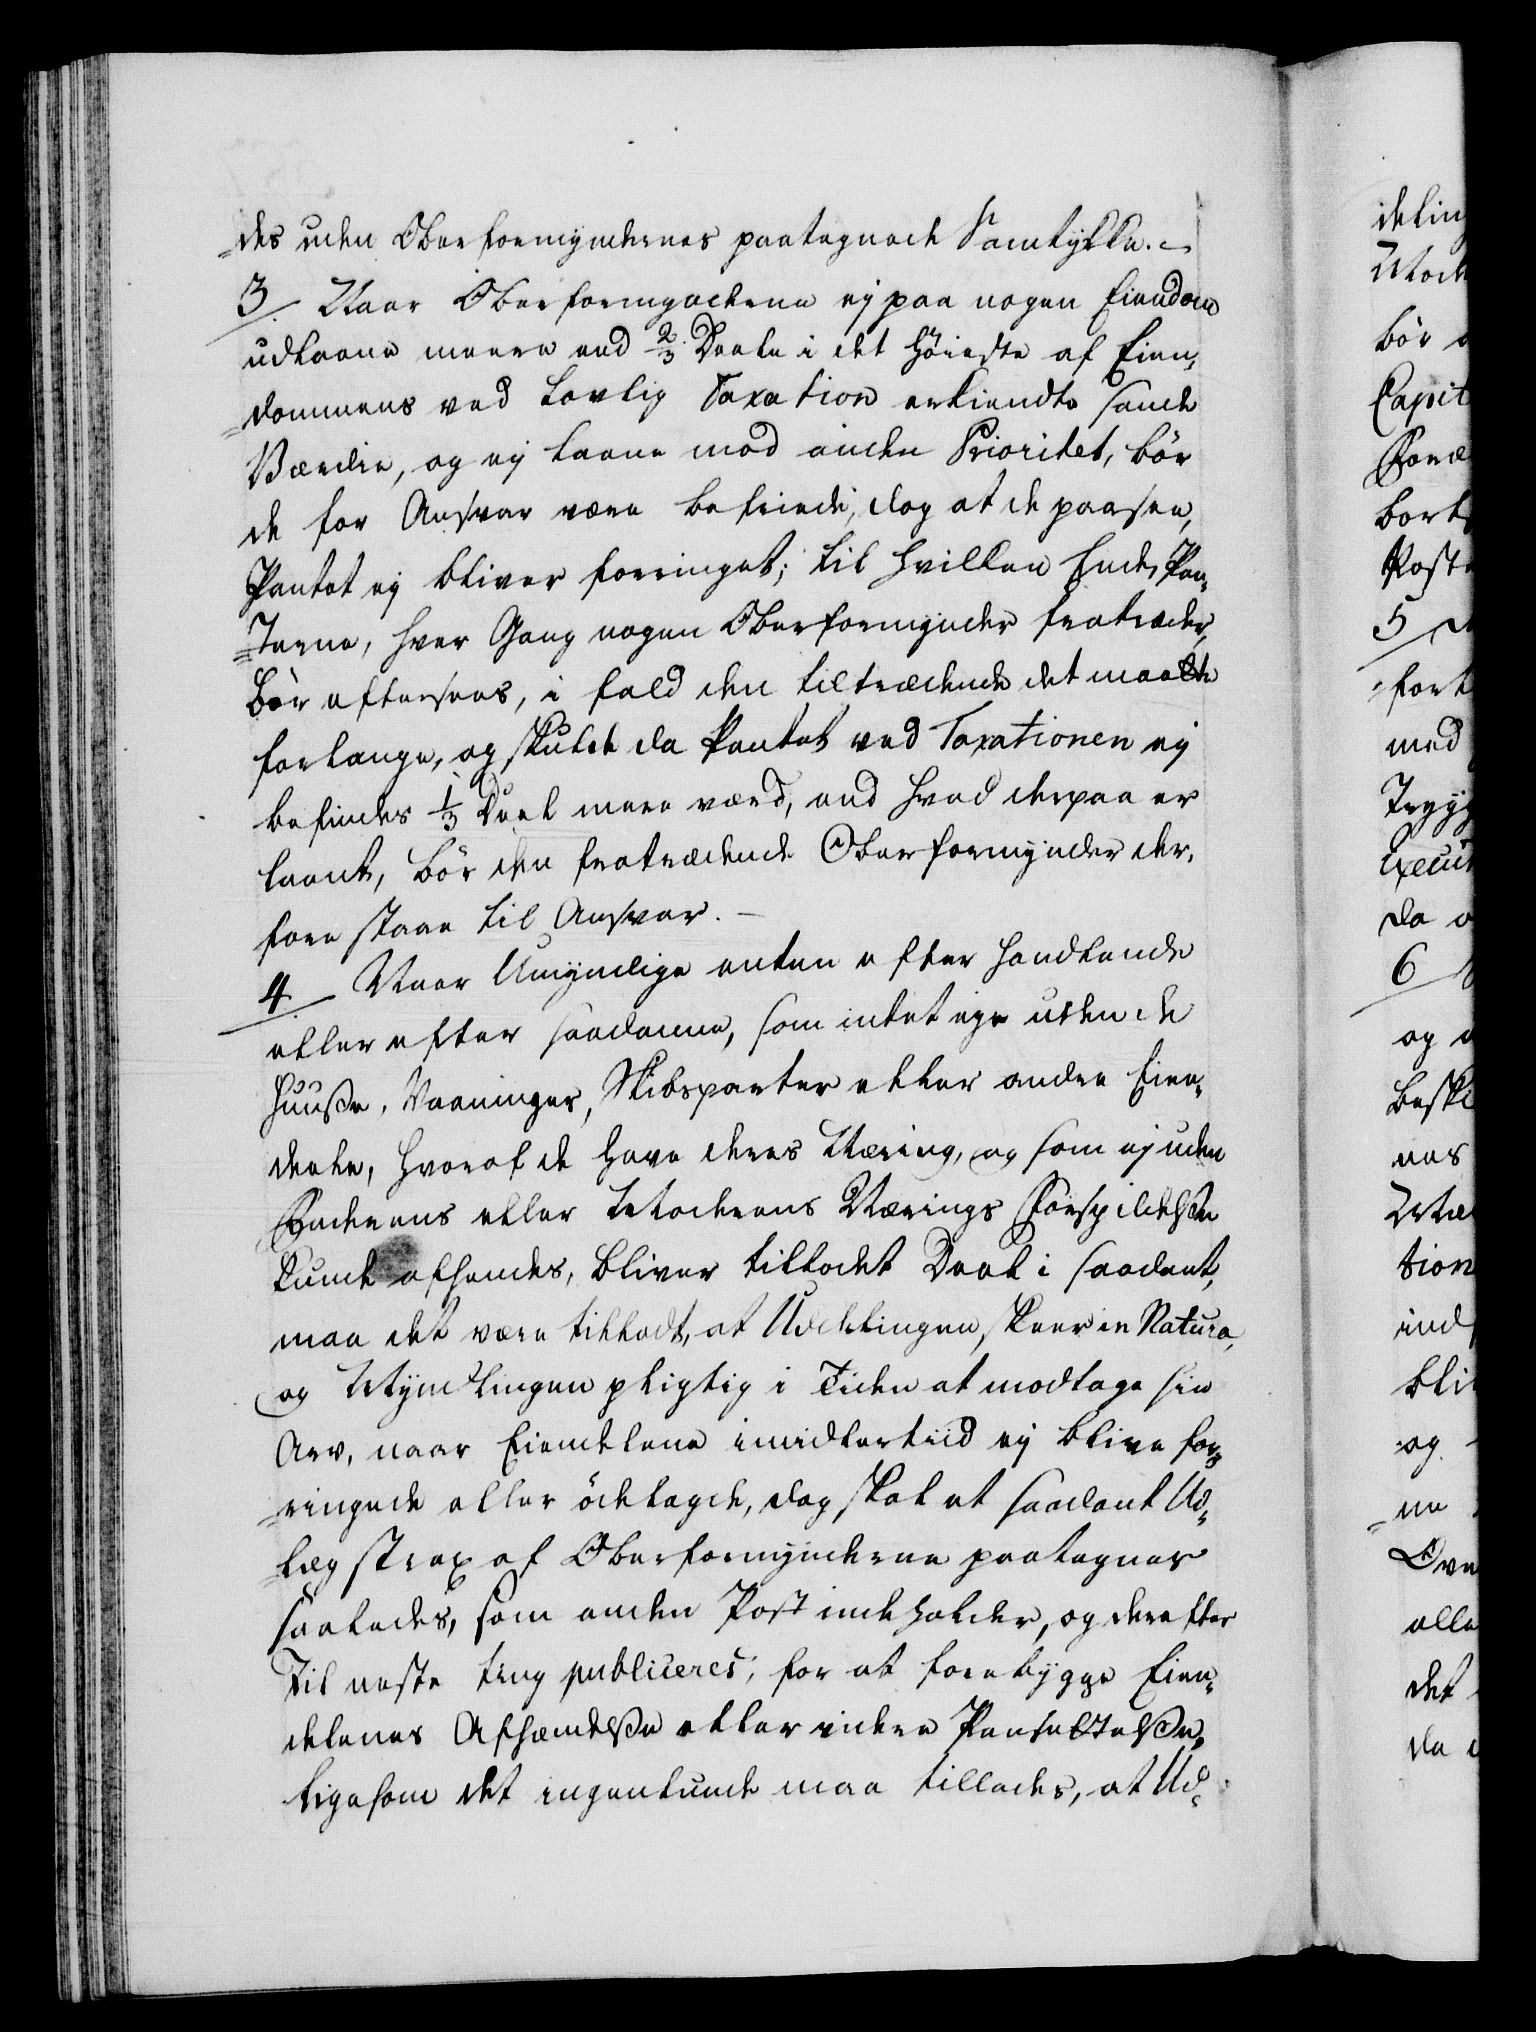 des uden Oberformyndernes paategnede Samtykke. –
3/ Naar Oberformynderne ej paa nogen Eiendom
udlaane meere end 2/3 Deele i det Høieste af Eien-
dommens ved lovlig Taxation erkiendte sande
Værdie, og ej laane mod anden Prioritet, bør
de for Ansvar være befriede, dog at de paasee,
Pantet ej bliver forringet; til hvilken Ende Pan-
terne, hver Gang nogen Oberformynder fratræder,
bør eftersees, i fald den tiltrædende det maatte
forlange, og skulde da Pantet ved Taxationen ej
befindes 1/3 Deel mere værd, end hvad derpaa er
laant, bør den fratrædende Oberformynder der-
fore staae til Ansvar. –
4/ Naar Umyndige enten efter Handlende
eller efter saadanne, som intet eje uden de
Huuse, Vaaninger, Skibsparter eller andre Eien-
deele, hvoraf de have deres Næring, og som ej uden
Faderens eller Moderens Nærings Forspildelse
kunde afhendes, bliver tillodet Deel i saadant,
maa det være tilladt, at Udeelingen skeer in Natura,
og Myndlingen pligtig i Tiden at modtage sin
Arv, naar Eiendelene imidlertiid ej blive for-
ringede eller ödelagde, dog skal et saadant Ud-
læg strax af Oberformynderne paategnes
saaledes, som anden Post indeholder, og derefter
til neste Ting publiceres, for at forebygge Eien-
delenes Afhændelse eller videre Pansættelse,
ligesom det ingenlunde maa tillades, at Ud-
ideling
Mode
bør
Capit
Foræ
bort
Poste
5/
fort
med
Tryg
Execut
da
6/
og
beski
nes
tion
ind
bli
og
ne
Ove
alle
det
da